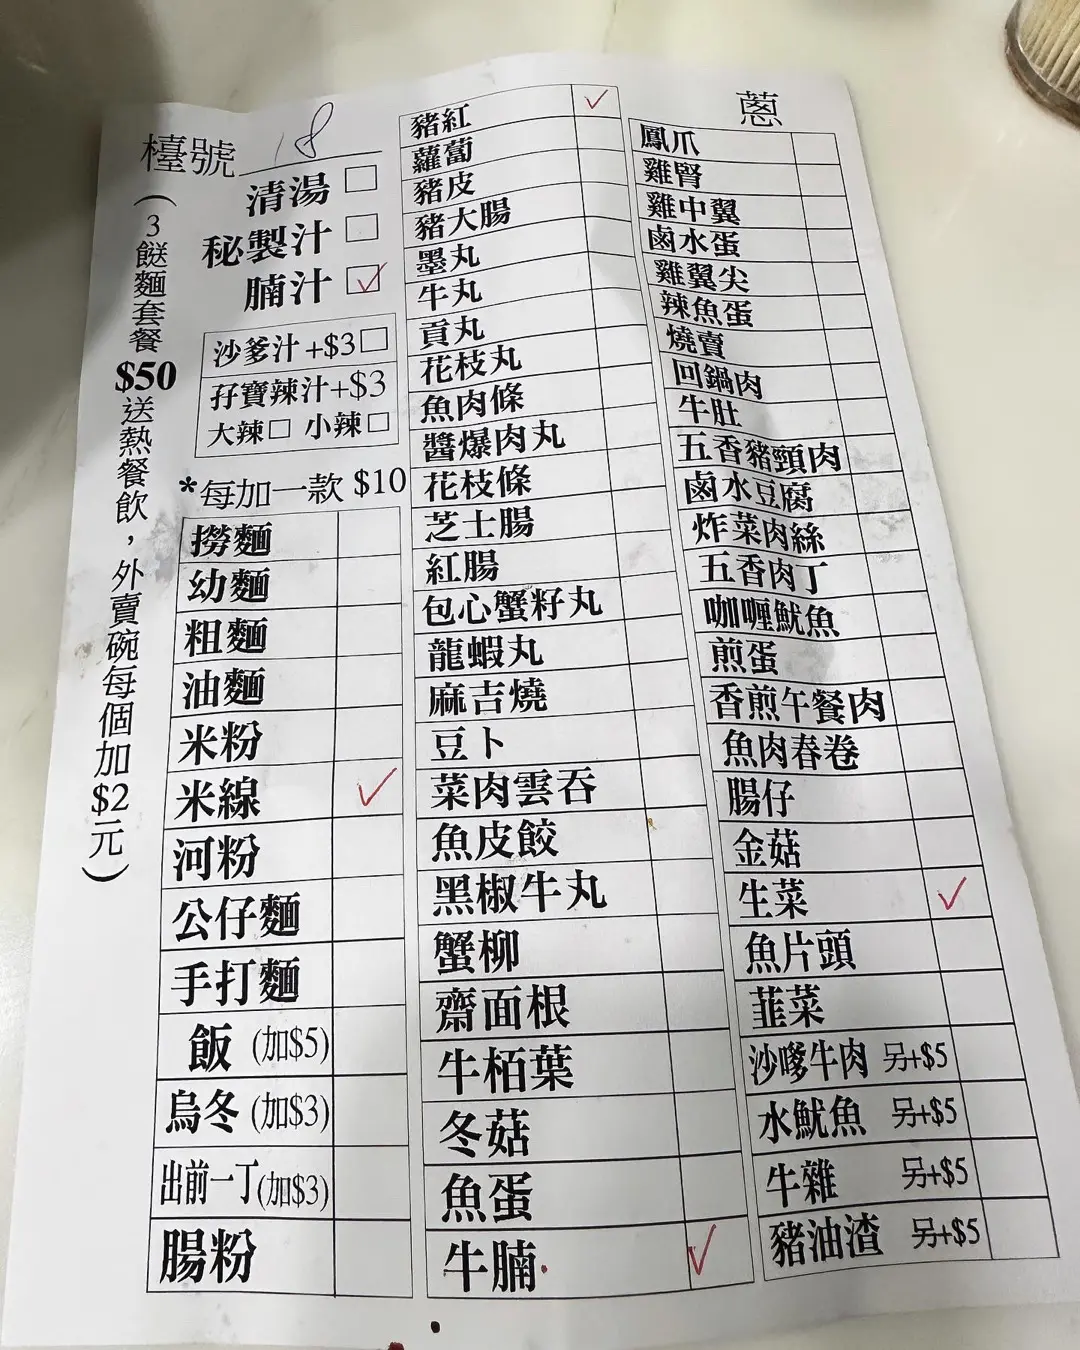 檯號 18
清湯
秘製汁
腩汁 ✓
沙爹汁+$3
孖寶辣汁+$3
大辣 小辣
*每加一款 $10
(3餸麵套餐$50送熱餐飲，外賣碗每個加$2元)
撈麵
幼麵
粗麵
油麵
米粉
米線 ✓
河粉
公仔麵
手打麵
飯 (加$5)
烏冬 (加$3)
出前一丁(加$3)
腸粉
豬紅 ✓
蘿蔔
豬皮
豬大腸
墨丸
牛丸
貢丸
花枝丸
魚肉條
醬爆肉丸
花枝條
芝士腸
紅腸
包心蟹籽丸
龍蝦丸
麻吉燒
豆卜
菜肉雲吞
魚皮餃
黑椒牛丸
蟹柳
齋面根
牛栢葉
冬菇
魚蛋
牛腩 ✓
蔥
鳳爪
雞腎
雞中翼
鹵水蛋
雞翼尖
辣魚蛋
燒賣
回鍋肉
牛肚
五香豬頸肉
鹵水豆腐
炸菜肉絲
五香肉丁
咖喱魷魚
煎蛋
香煎午餐肉
魚肉春卷
腸仔
金菇
生菜 ✓
魚片頭
韮菜
沙嗲牛肉 另+$5
水魷魚 另+$5
牛雜 另+$5
豬油渣 另+$5